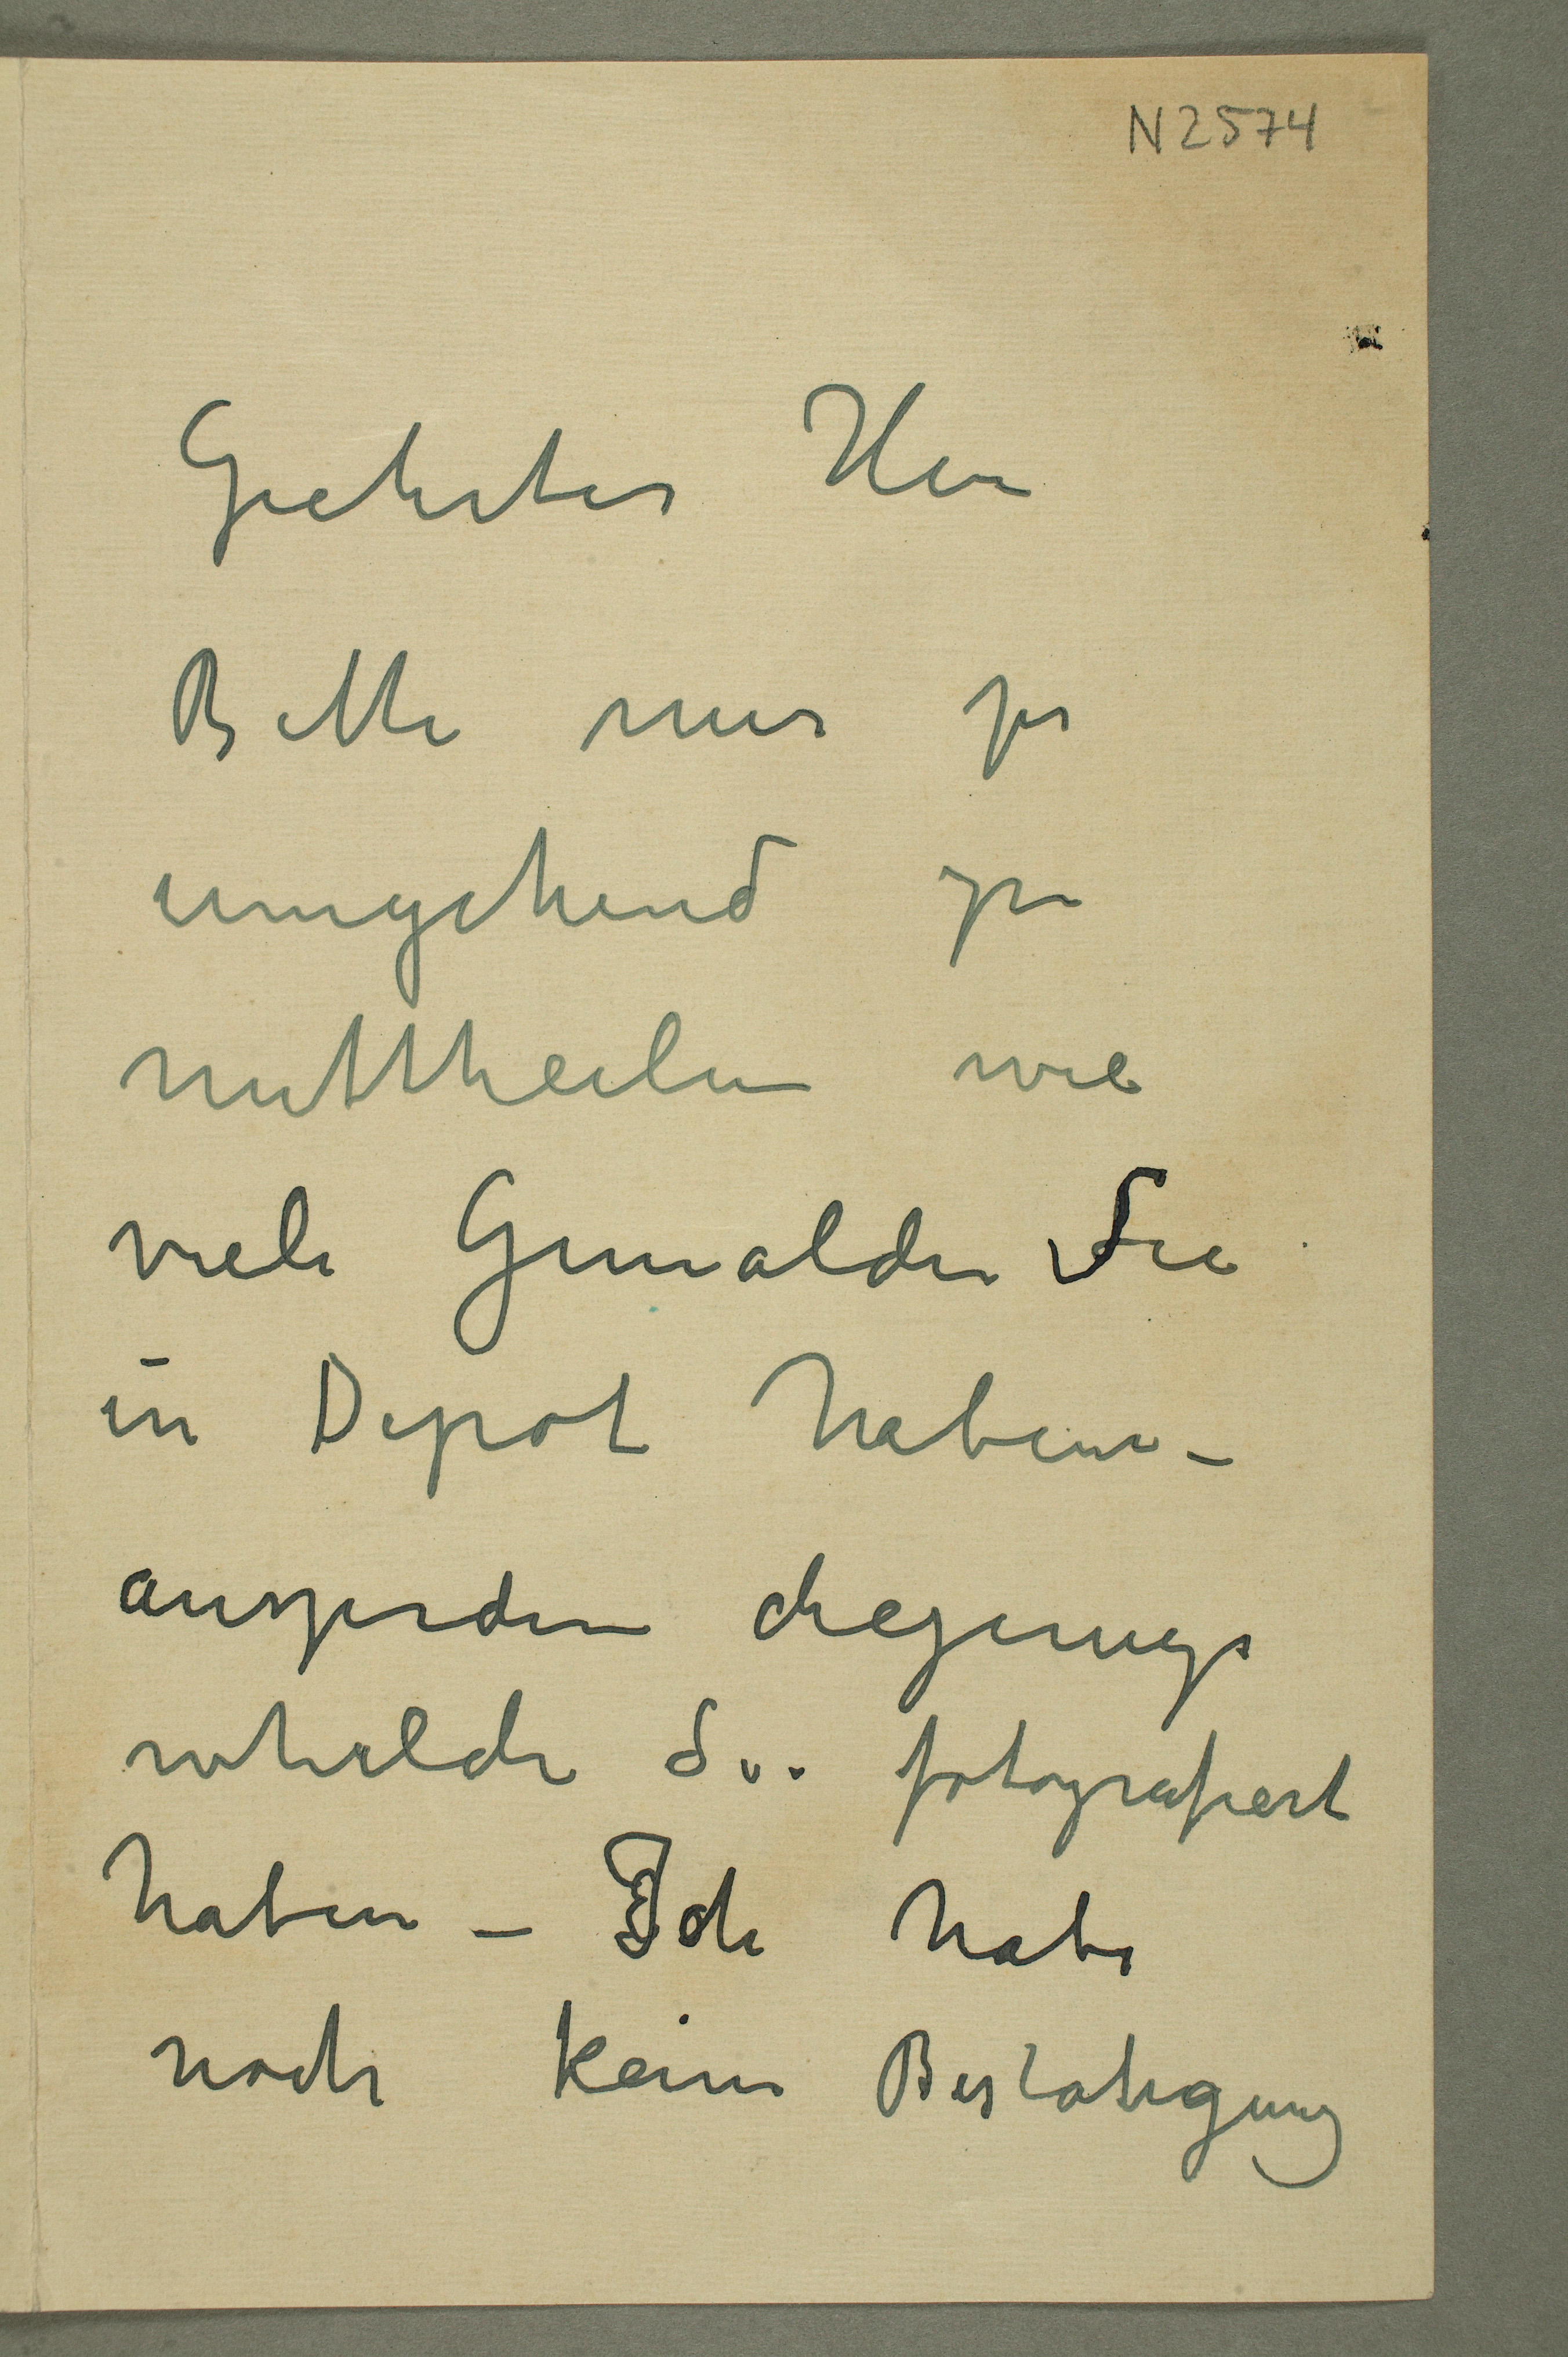 N 2574
Geehrter Herr
Bitte mir pr
umgehend zu
mittheilen wie
viele Gemalden Sie
in Depot haben –
auszerdem diejenige
whelche Sie fotografiert
haben – Ich habe
noch keine Bestatigung